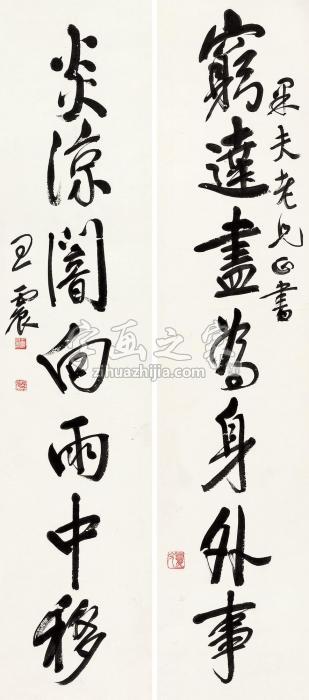 果夫老兄正書
窮達盡為身外事
炎涼闇向雨中移
王震
字画之家
zihuazhijia.com